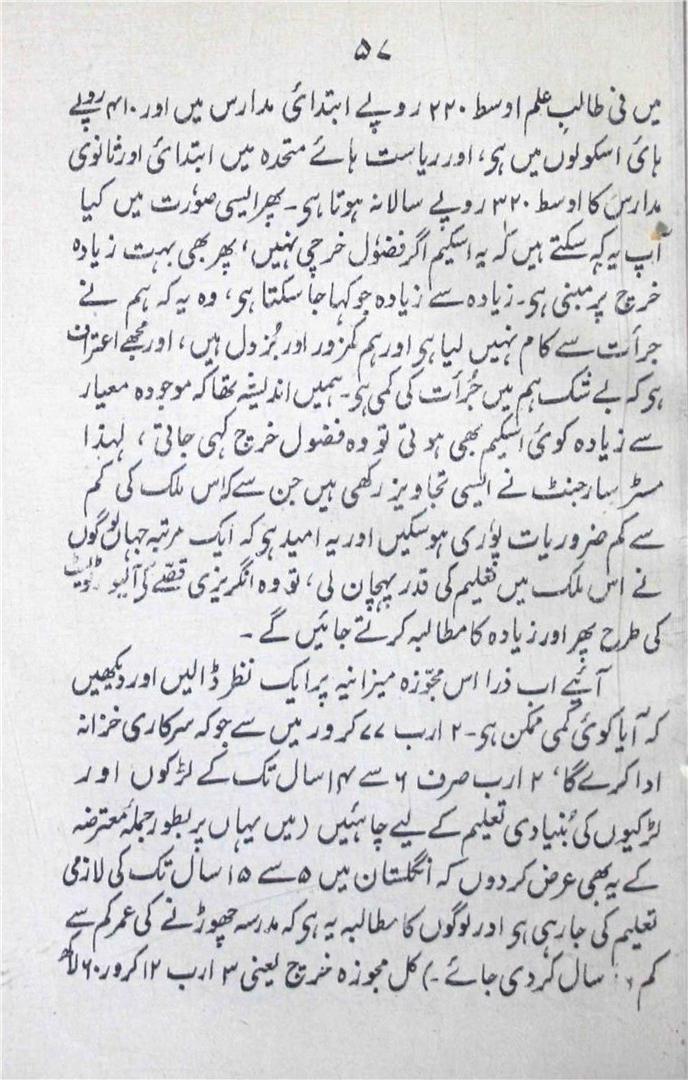 ۵۷
میں فی طالبِ علم اوسط ۲۲۰ روپے ابتدائی مدارس میں اور ۴۱۰ روپے
ہائی اسکولوں میں ہی، اور ریاست ہائے متحدہ میں ابتدائی اور ثانوی
مدارس کا اوسط ۳۲۰ روپے سالانہ ہوتا ہی۔ پھر ایسی صورت میں کیا
آپ یہ کہہ سکتے ہیں کہ یہ اسکیم اگر فضول خرچی نہیں، پھر بھی بہت زیادہ
خرچ پر مبنی ہی۔ زیادہ سے زیادہ جو کہا جا سکتا ہی، وہ یہ کہ ہم نے
جرأت سے کام نہیں لیا ہی اور ہم کمزور اور بُزدل ہیں، اور مجھے اعتراف
ہی کہ بے شک ہم میں جُرأت کی کمی ہی۔ ہمیں اندیشہ تھا کہ موجودہ معیار
سے زیادہ کوئی اسکیم بھی ہوتی تو وہ فضول خرچ کہی جاتی، لہٰذا
مسٹر سارجنٹ نے ایسی تجاویز رکھی ہیں جن سے کہ اس ملک کی کم
سے کم ضروریات پوری ہو سکیں اور یہ امید ہی کہ ایک مرتبہ جہاں لوگوں
نے اس ملک میں تعلیم کی قدر پہچان لی، تو وہ انگریزی قصّے کے آلیور ٹوئیسٹ
کی طرح پھر اور زیادہ کا مطالبہ کرتے جائیں گے۔
آئیے اب ذرا اس مجوّزہ میزانیہ پر ایک نظر ڈالیں اور دیکھیں
کہ آیا کوئی کمی ممکن ہی۔ ۲ ارب ۷۷ کرور میں سے جو کہ سرکاری خزانہ
ادا کرے گا، ۲ ارب صرف ۶ سے ۱۴ سال تک کے لڑکوں اور
لڑکیوں کی بُنیادی تعلیم کے لیے چاہئیں (میں یہاں پر بطور جملۂ معترضہ
کے یہ بھی عرض کر دوں کہ انگلستان میں ۵ سے ۱۵ سال تک کی لازمی
تعلیم کی جا رہی ہی اور لوگوں کا مطالبہ یہ ہی کہ مدرسہ چھوڑنے کی عمر کم سے
کم سال کر دی جائے۔) کل مجوزہ خرچ یعنی ۳ ارب ۱۲ کرور ۶۰ لاکھ